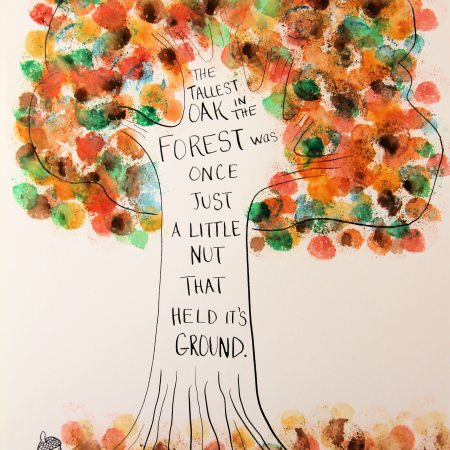 THE
TALLEST
OAK IN THE
FOREST was
ONCE
JUST
A LITTLE
NUT
THAT
HELD IT'S
GROUND.